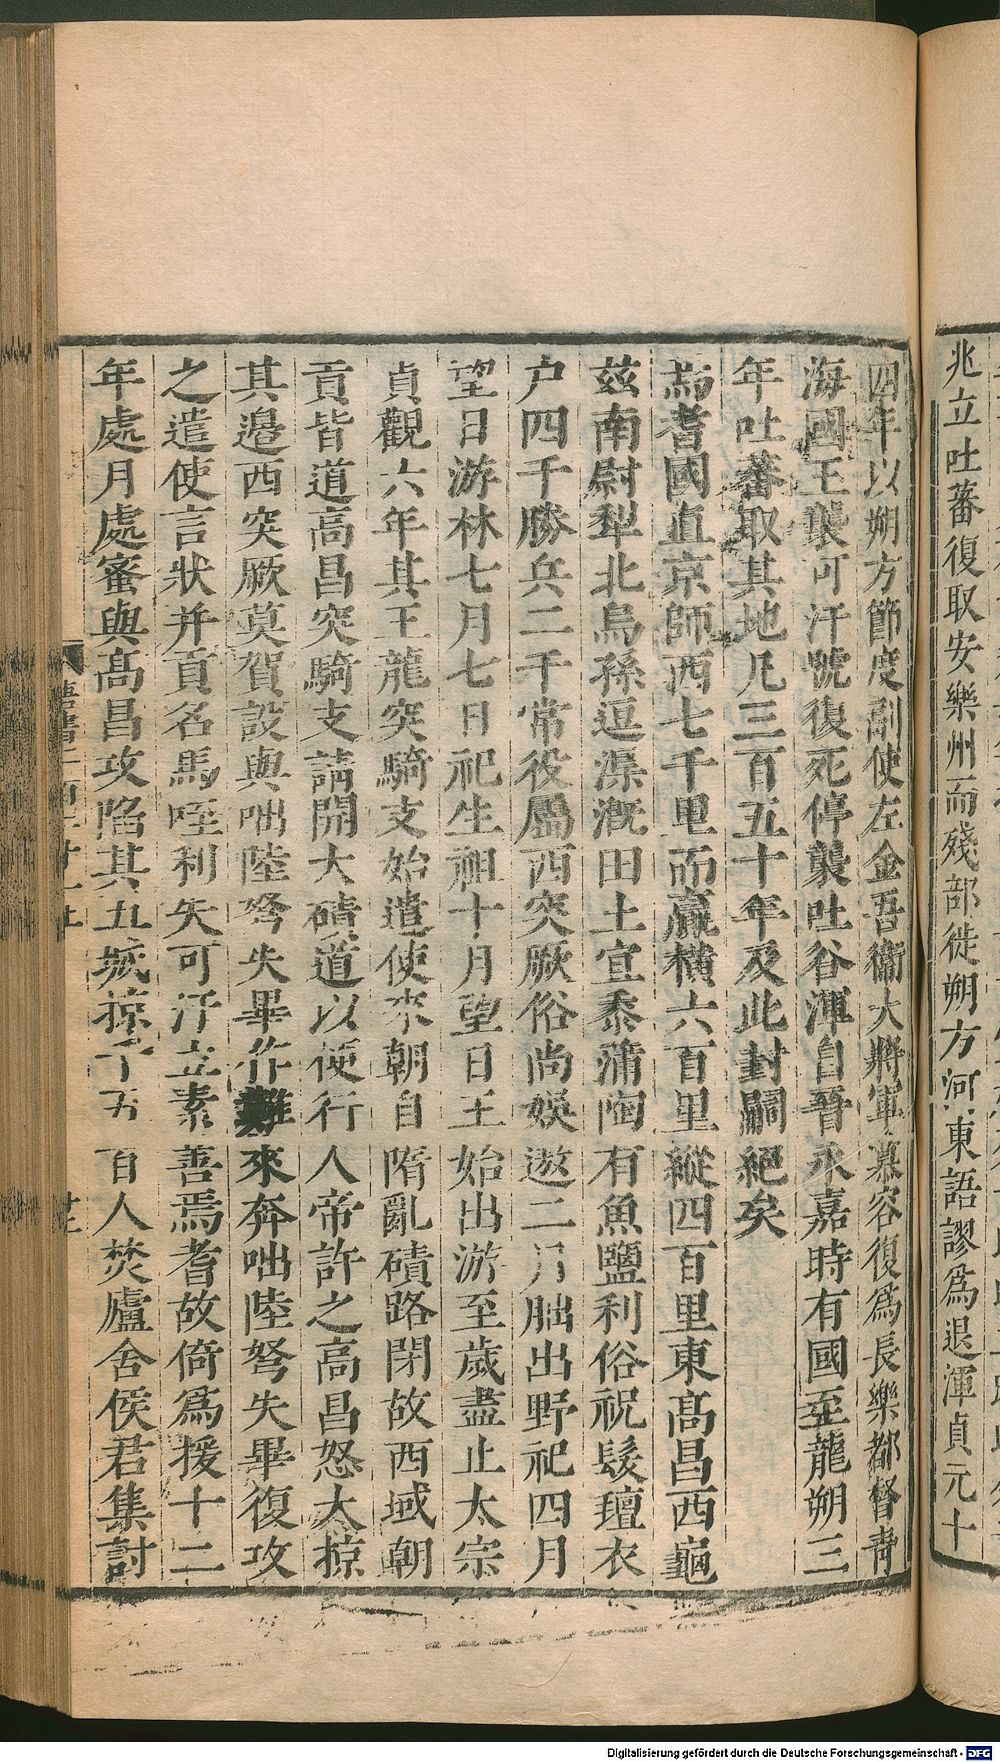 兆立吐蕃復取安樂州而殘部徙朔方河東語謬爲退渾貞元十
四年以朔方節度副使左金吾衛大將軍慕容復爲長樂都督青
海國王襲可汗號復死停襲吐谷渾自晉永嘉時有國至龍朔三
年吐蕃取其地凡三百五十年及此封嗣絕矣
焉耆國直京師西七千里而贏橫六百里縱四百里東高昌西龜
兹南尉犁北烏孫逗渠漑田土宜黍蒲陶有魚鹽利俗祝髮氊衣
户四千勝兵二千常役屬西突厥俗尚娛遨二月朏出野祀四月
望日游林七月七日祀生祖十月望日王始出游至歲盡止太宗
貞觀六年其王龍突騎支始遣使來朝自隋亂磧路閉故西域朝
貢皆道高昌突騎支請開大磧道以便行人帝許之高昌怒大掠
其邉西突厥莫賀設與咄陸弩失畢作難來奔咄陸弩失畢復攻
之遣使言狀并貢名馬咥利失可汗立素善焉耆故倚爲援十二
年處月處蜜與高昌攻陷其五城掠千五百人焚廬舍侯君集討
唐書二百二十一上
Digitalisierung gefördert durch die Deutsche Forschungsgemeinschaft - DFG